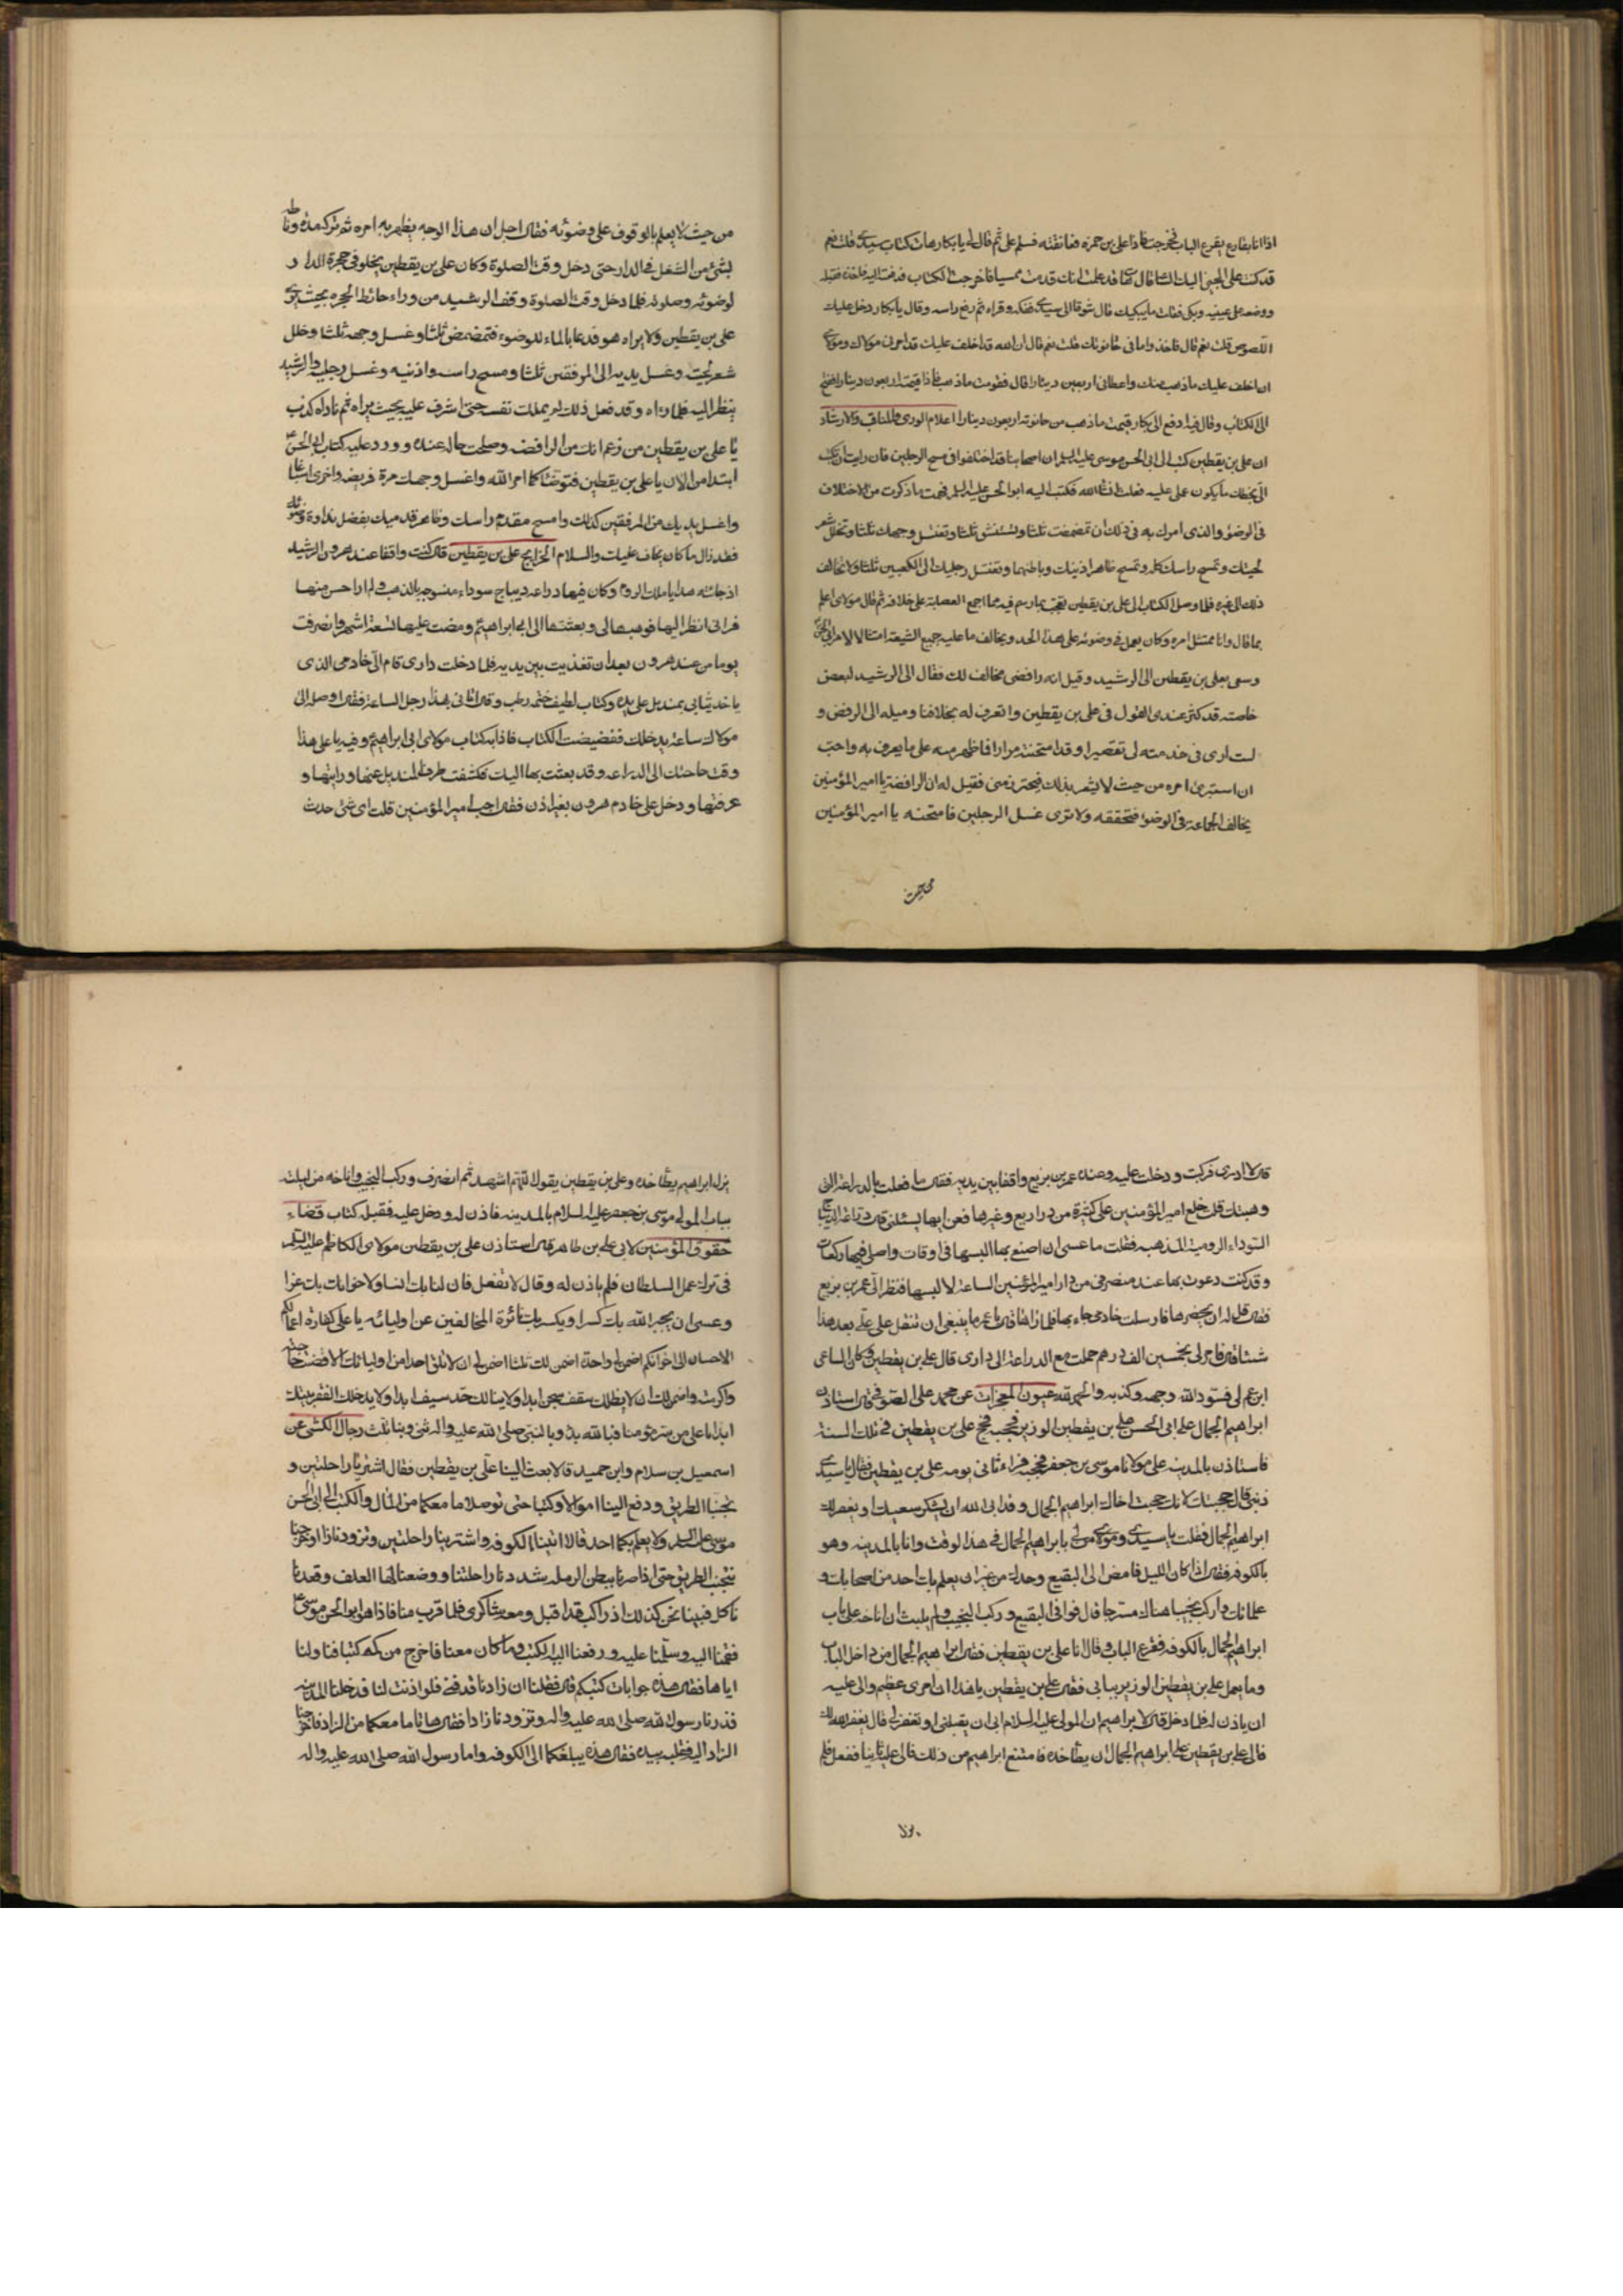 اذا انا بقارع يقرع الباب فخرجت فاذا علي بن حمزه فعانقته فسلم علي ثم قال لي يا بكار هات كتاب سيدي قلت نعم
قد كنت على المجيئ اليك الساعة قال لي قد علمت انك قدمت ممسيا فاخرجت الكتاب فدفعته اليه فاخذه فقبله
ووضعه على عينيه وبكى فقلت ما يبكيك قال شوقا الى سيدي ففكه وقراه ثم رفع راسه وقال يا بكار دخل عليك
اللصوص قلت نعم قال فاخذوا ما في حانوتك قلت نعم قال ان الله قد اخلف عليك قد امرني مولاك ومولاي
ان اخلف عليك ما ذهب منك واعطاني اربعين دينارا قال فقومت ما ذهب فاذا قيمته اربعون دينارا ففتح
الى الكتاب وقال فيه ادفع الى بكار قيمة ما ذهب من حانوته اربعون دينارا اعلام الورى والمناقب والارشاد
ان علي بن يقطين كتب الى ابي الحسن موسى عليه السلم ان اصحابنا قد اختلفوا في مسح الرجلين فان رايت ان تكتب
الي بخطك ما يكون عملي عليه فعلت انشاالله فكتب اليه ابو الحسن عليه السلم فهمت ما ذكرت من الاختلاف
في الوضوء والذي امرك به في ذلك ان تمضمضت ثلثا وتستنشق ثلثا وتغسل وجهك ثلثا وتخلل شعر
لحيتك وتمسح راسك كله وتمسح ظاهر اذنيك وباطنهما وتغسل رجليك الى الكعبين ثلثا ولا تخالف
ذلك الى غيره فلما وصل الكتاب الى علي بن يقطين تعجب بما رسم فيه مما اجمع العصابة على خلافه ثم قال مولاي اعلم
بما قال وانا ممتثل امره وكان يعمل في وضوئه على هذا الحد ويخالف ما عليه جميع الشيعة امتثالا لامر ابي الحسن
وسعى بعلي بن يقطين الى الرشيد وقيل انه رافضي مخالف لك فقال الرشيد لبعض
خاصته قد كثر عندي القول في علي بن يقطين والقرف له بخلافنا وميله الى الرفض و
لست ارى في خدمته لي تقصيرا وقد امتحنته مرارا فما ظهر منه على ما يعرف به واحب
ان استبرئ امره من حيث لا يشعر بذلك فيحترز مني فقيل له ان الرافضة يا امير المؤمنين
يخالف الجماعة في الوضوء فتخففه ولا ترى غسل الرجلين فامتحنه يا امير المؤمنين
من حيث
من حيث لا يعلم بالوقوف على وضوئه فقال اجل ان هذا الوجه يظهر به امره ثم تركه مدة وناطه
بشئ من الشغل في الدار حتى دخل وقت الصلوة وكان علي بن يقطين يخلو في حجرة الدار
لوضوئه وصلوته فلما دخل وقت الصلوة وقف الرشيد من وراء حائط الحجره بحيث يرى
علي بن يقطين ولا يراه هو فدعا بالماء للوضوء فتمضمض ثلثا وغسل وجهه ثلثا وخلل
شعر لحيته وغسل يديه الى المرفقين ثلثا ومسح راسه واذنيه وغسل رجليه والرشيد
ينظر اليه فلما راه وقد فعل ذلك لم يملك نفسه حتى اشرف عليه بحيث يراه ثم ناداه كذب
يا علي بن يقطين من زعم انك من الرافضه وصلحت حاله عنده وورد عليه كتاب ابي الحسن ع
ابتداء من الان يا علي بن يقطين فتوضأ كما امر الله واغسل وجهك مرة فريضه واخرى اسباغا
واغسل يديك من المرفقين كذلك وامسح مقدم راسك وظاهر قدميك بفضل نداوة وضوئك
فقد زال ما كان يخاف عليك والسلام الخرايج علي بن يقطين قال كنت واقفا عند هرون الرشيد
اذ جائته هدايا ملك الروم وكان فيها دراعه ديباج سوداء منسوجه بالذهب لم ار احسن منها
فراني انظر اليها فوهبها لي وبعثتها الى ابي ابراهيم ع ومضت عليها تسعة اشهر وانصرفت
يوما من عند هرون بعد ان تغذيت بين يديه فلما دخلت داري قام الي خادمي الذي
ياخذ ثيابي بمنديل على يده وكتاب لطيف ختمه رطب وقال اتاني بهذا رجل الساعة فقال اوصله الى
مولاك ساعة يدخل ففضضت الكتاب فاذا به كتاب مولاي ابي ابراهيم ع وفيه يا علي هذا
وقت حاجتك الى الدراعه وقد بعثت بها اليك فكشفت طرف المنديل عنها ورايتها و
عرفتها ودخل علي خادم هرون بغير اذن فقال اجب امير المؤمنين قلت اي شئ حدث
قال لا ادري فركبت ودخلت عليه وعنده عمر بن بزيع واقفا بين يديه فقال ما فعلت بالدراعة التي
وهبتك قلت خلع امير المؤمنين علي كثيرة من دراريع وغيرها فعن ايها يسئلني قال دراعة الديباج
السوداء الرومية المذهبه فقلت ما عسى ان اصنع بها البسها في اوقات واصلي فيها ركعات
وقد كنت دعوت بها عند منصرفي من دار امير المؤمنين الساعة لالبسها فنظر الى عمر بن بزيع
فقال قل له ان يحضرها فارسلت خادمي جاء بها فلما راها قال يا عمر ما ينبغي ان تنقل على علي بعد هذا
شيئا قال فامر لي بخمسين الف درهم حملت مع الدراعة الى داري قال علي بن يقطين وكان الساعي
ابن عم لي فسود الله وجهه وكذبه والحمد لله عيون المعجزات عن محمد علي الصوفي قال استاذن
ابراهيم الجمال على ابي الحسن علي بن يقطين الوزير فحجبه فحج علي بن يقطين في تلك السنة
فاستاذن بالمدينه على مولانا موسى بن جعفر فحجبه فراه ثاني يومه علي بن يقطين فقال يا سيدي
ذنبي قال حجبتك لانك حجبت اخاك ابراهيم الجمال وقد ابى الله ان يشكر سعيك او يغفر لك
ابراهيم الجمال فقلت يا سيدي ومولاي من لي بابراهيم الجمال في هذا لوقت وانا بالمدينه وهو
بالكوفه فقال اذا كان الليل فامض الى البقيع وحدك من غير ان يعلم بك احد من اصحابك و
غلمانك واركب نجيبا هناك مسرجا قال فوافى البقيع وركب النجيب ولم يلبث ان اناخه على باب
ابراهيم الجمال بالكوفه فقرع الباب وقال انا علي بن يقطين فقال ابراهيم الجمال من داخل الباب
وما يعمل علي بن يقطين الوزير ببابي فقال علي بن يقطين يا هذا ان امري عظيم والى عليه
ان ياذن له فلما دخل قال يا ابراهيم ان المولى عليه السلام ابى ان يقبلني او تغفر لي قال يغفر الله لك
فالى علي بن يقطين على ابراهيم الجمال ان يطأ خده فامتنع ابراهيم من ذلك فالى عليه ثانيا ففعل فلم
يزل
يزل ابراهيم يطأ خده وعلي بن يقطين يقول اللهم اشهد ثم انصرف وركب النجيب واناخه من ليلته
بباب المولى موسى بن جعفر عليه السلام بالمدينه فاذن له ودخل عليه فقبله كتاب قضاء
حقوق المؤمنين لابي علي بن طاهر قال استاذن علي بن يقطين مولاي الكاظم عليه السلم
في ترك عمل السلطان فلم ياذن له وقال لا تفعل فان لنا بك انسا ولاخوانك بك عزا
وعسى ان يجبر الله بك كسرا ويكسر بك نائرة المخالفين عن اوليائه يا علي كفارة اعمالكم
الاحسان الى اخوانكم اضمن لي واحدة اضمن لك ثلثا اضمن لي ان لا تلقى احدا من اوليائك الا قضيت حاجته
واكرمته واضمن لك ان لا يظلك سقف سجن ابدا ولا ينالك حد سيف ابدا ولا يدخلك الفقر بيتك
ابدا يا علي من سر مؤمنا فبالله بدأ وبالنبي صلى الله عليه واله ثنى وبنا ثلث رجال الكشي عن
اسمعيل بن سلام وابن حميد قالا بعث الينا علي بن يقطين فقال اشتريا راحلتين و
تجنبا الطريق ودفع الينا اموالا وكتبا حتى توصلا ما معكما من المال والكتب الى ابي الحسن
موسى عليه السلم ولا يعلم بكما احد قالا اتينا الكوفه واشترينا راحلتين وتزودنا زادا وخرجنا
نتجنب الطريق حتى اذا صرنا ببطن الرمله شددنا راحلتنا ووضعنا لها العلف وقعدنا
ناكل فبينا نحن كذلك اذ راكب قد اقبل ومعه شاكري فلما قرب منا فاذا هو ابو الحسن موسى ع
فقمنا اليه وسلمنا عليه ودفعنا اليه الكتب وما كان معنا فاخرج من كمه كتبا فناولنا
اياها فقال هذه جوابات كتبكم قال فقلنا ان زادنا قد فنى فلو اذنت لنا فدخلنا المدينه
فزرنا رسول الله صلى الله عليه واله وتزودنا زادا فقال هاتا ما معكما من الزاد فاخرجنا
الزاد اليه فقلبه بيده فقال هذه يبلغكما الى الكوفه واما رسول الله صلى الله عليه واله